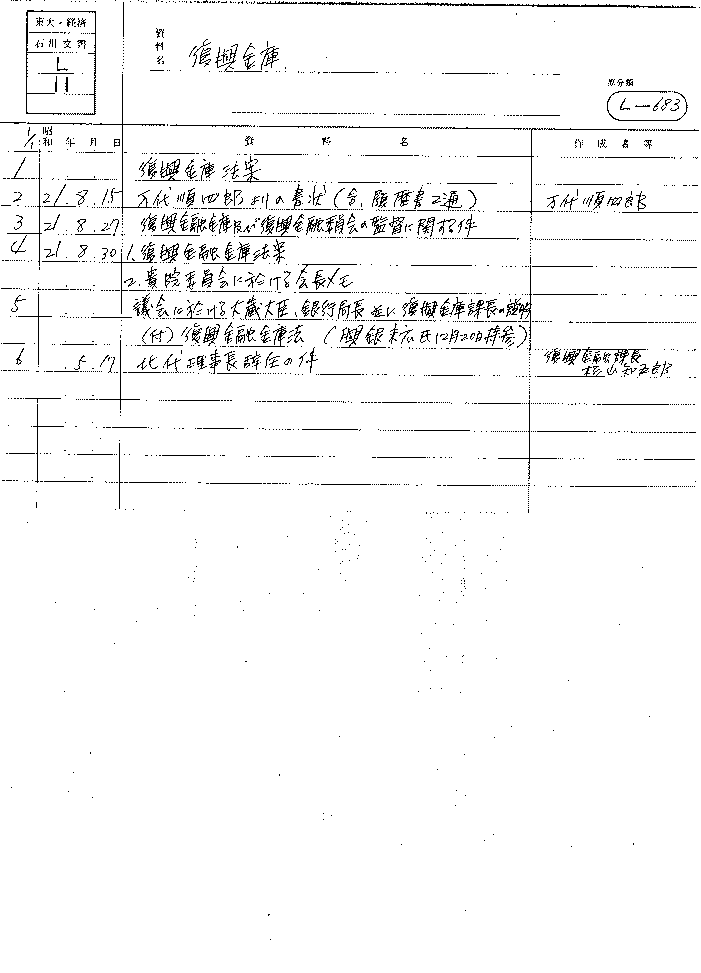 東大・経済
石川文書
L
11
資料名 復興金庫
原分類
L-683
1/1 昭和 年 月 日 資 料 名 作 成 者 等
1 復興金庫法案
2 21 8 15 万代順四郎よりの書状(含、履歴書2通) 万代順四郎
3 21 8 27 復興金融金庫及び復興金融委員会の監督に関する件
4 21 8 30 1.復興金融金庫法案
2.貴院委員会に於ける会長メモ
5 議会に於ける大蔵大臣、銀行局長並に復興金庫課長の説明
(付) 復興金融金庫法 (興銀末広氏12月20日持参)
6 5 17 北代理事長辞任の件 復興金融課長
杉山知五郎